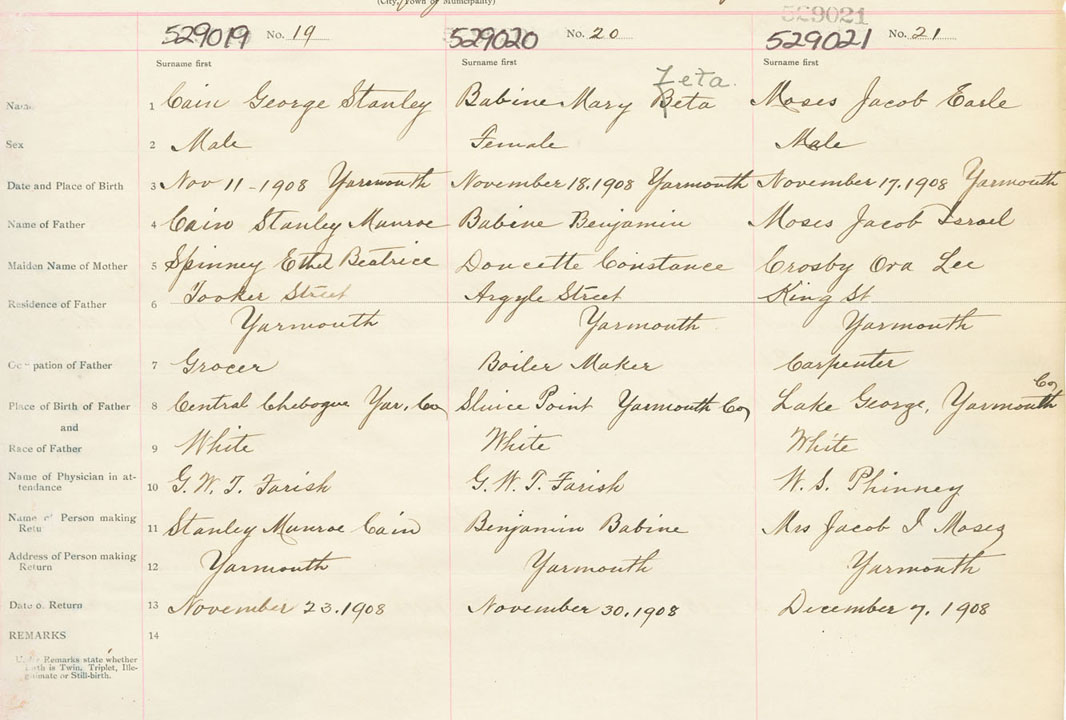 (City, Town or Municipality)
529021
529019 No. 19 529020 No. 20 529021 No. 21
Surname first Surname first Surname first
Zeta.
Name 1 Cain George Stanley Babine Mary Beta Moses Jacob Earle
Sex 2 Male Female Male
Date and Place of Birth 3 Nov 11-1908 Yarmouth November 18.1908 Yarmouth November 17.1908 Yarmouth
Name of Father 4 Cain Stanley Munroe Babine Benjamin Moses Jacob Israel
Maiden Name of Mother 5 Spinney Ethel Beatrice Doucette Constance Crosby Ora Lee
Residence of Father 6 Tooker Street Argyle Street King St
Yarmouth Yarmouth Yarmouth
Occupation of Father 7 Grocer Boiler Maker Carpenter
Co
Place of Birth of Father 8 Central Chebogue Yar. Co Sluice Point Yarmouth Co Lake George, Yarmouth
and
Race of Father 9 White White White
Name of Physician in at-
tendance 10 G. W. T. Farish G. W. T. Farish W. S. Phinney
Name of Person making
Retu 11 Stanley Munroe Cain Benjamin Babine Mrs Jacob I Moses
Address of Person making
Return 12 Yarmouth Yarmouth Yarmouth
Date o. Return 13 November 23.1908 November 30.1908 December 7. 1908
REMARKS 14
Under Remarks state whether
birth is Twin, Triplet, Ille-
gitimate or Still-birth.